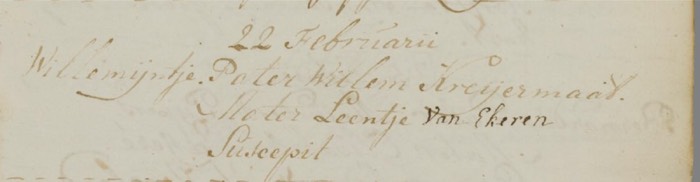 22 Februarii
Willemijntje. Pater Willem Kreijermaat.
Mater Leentje Van Ekeren
Suscepit